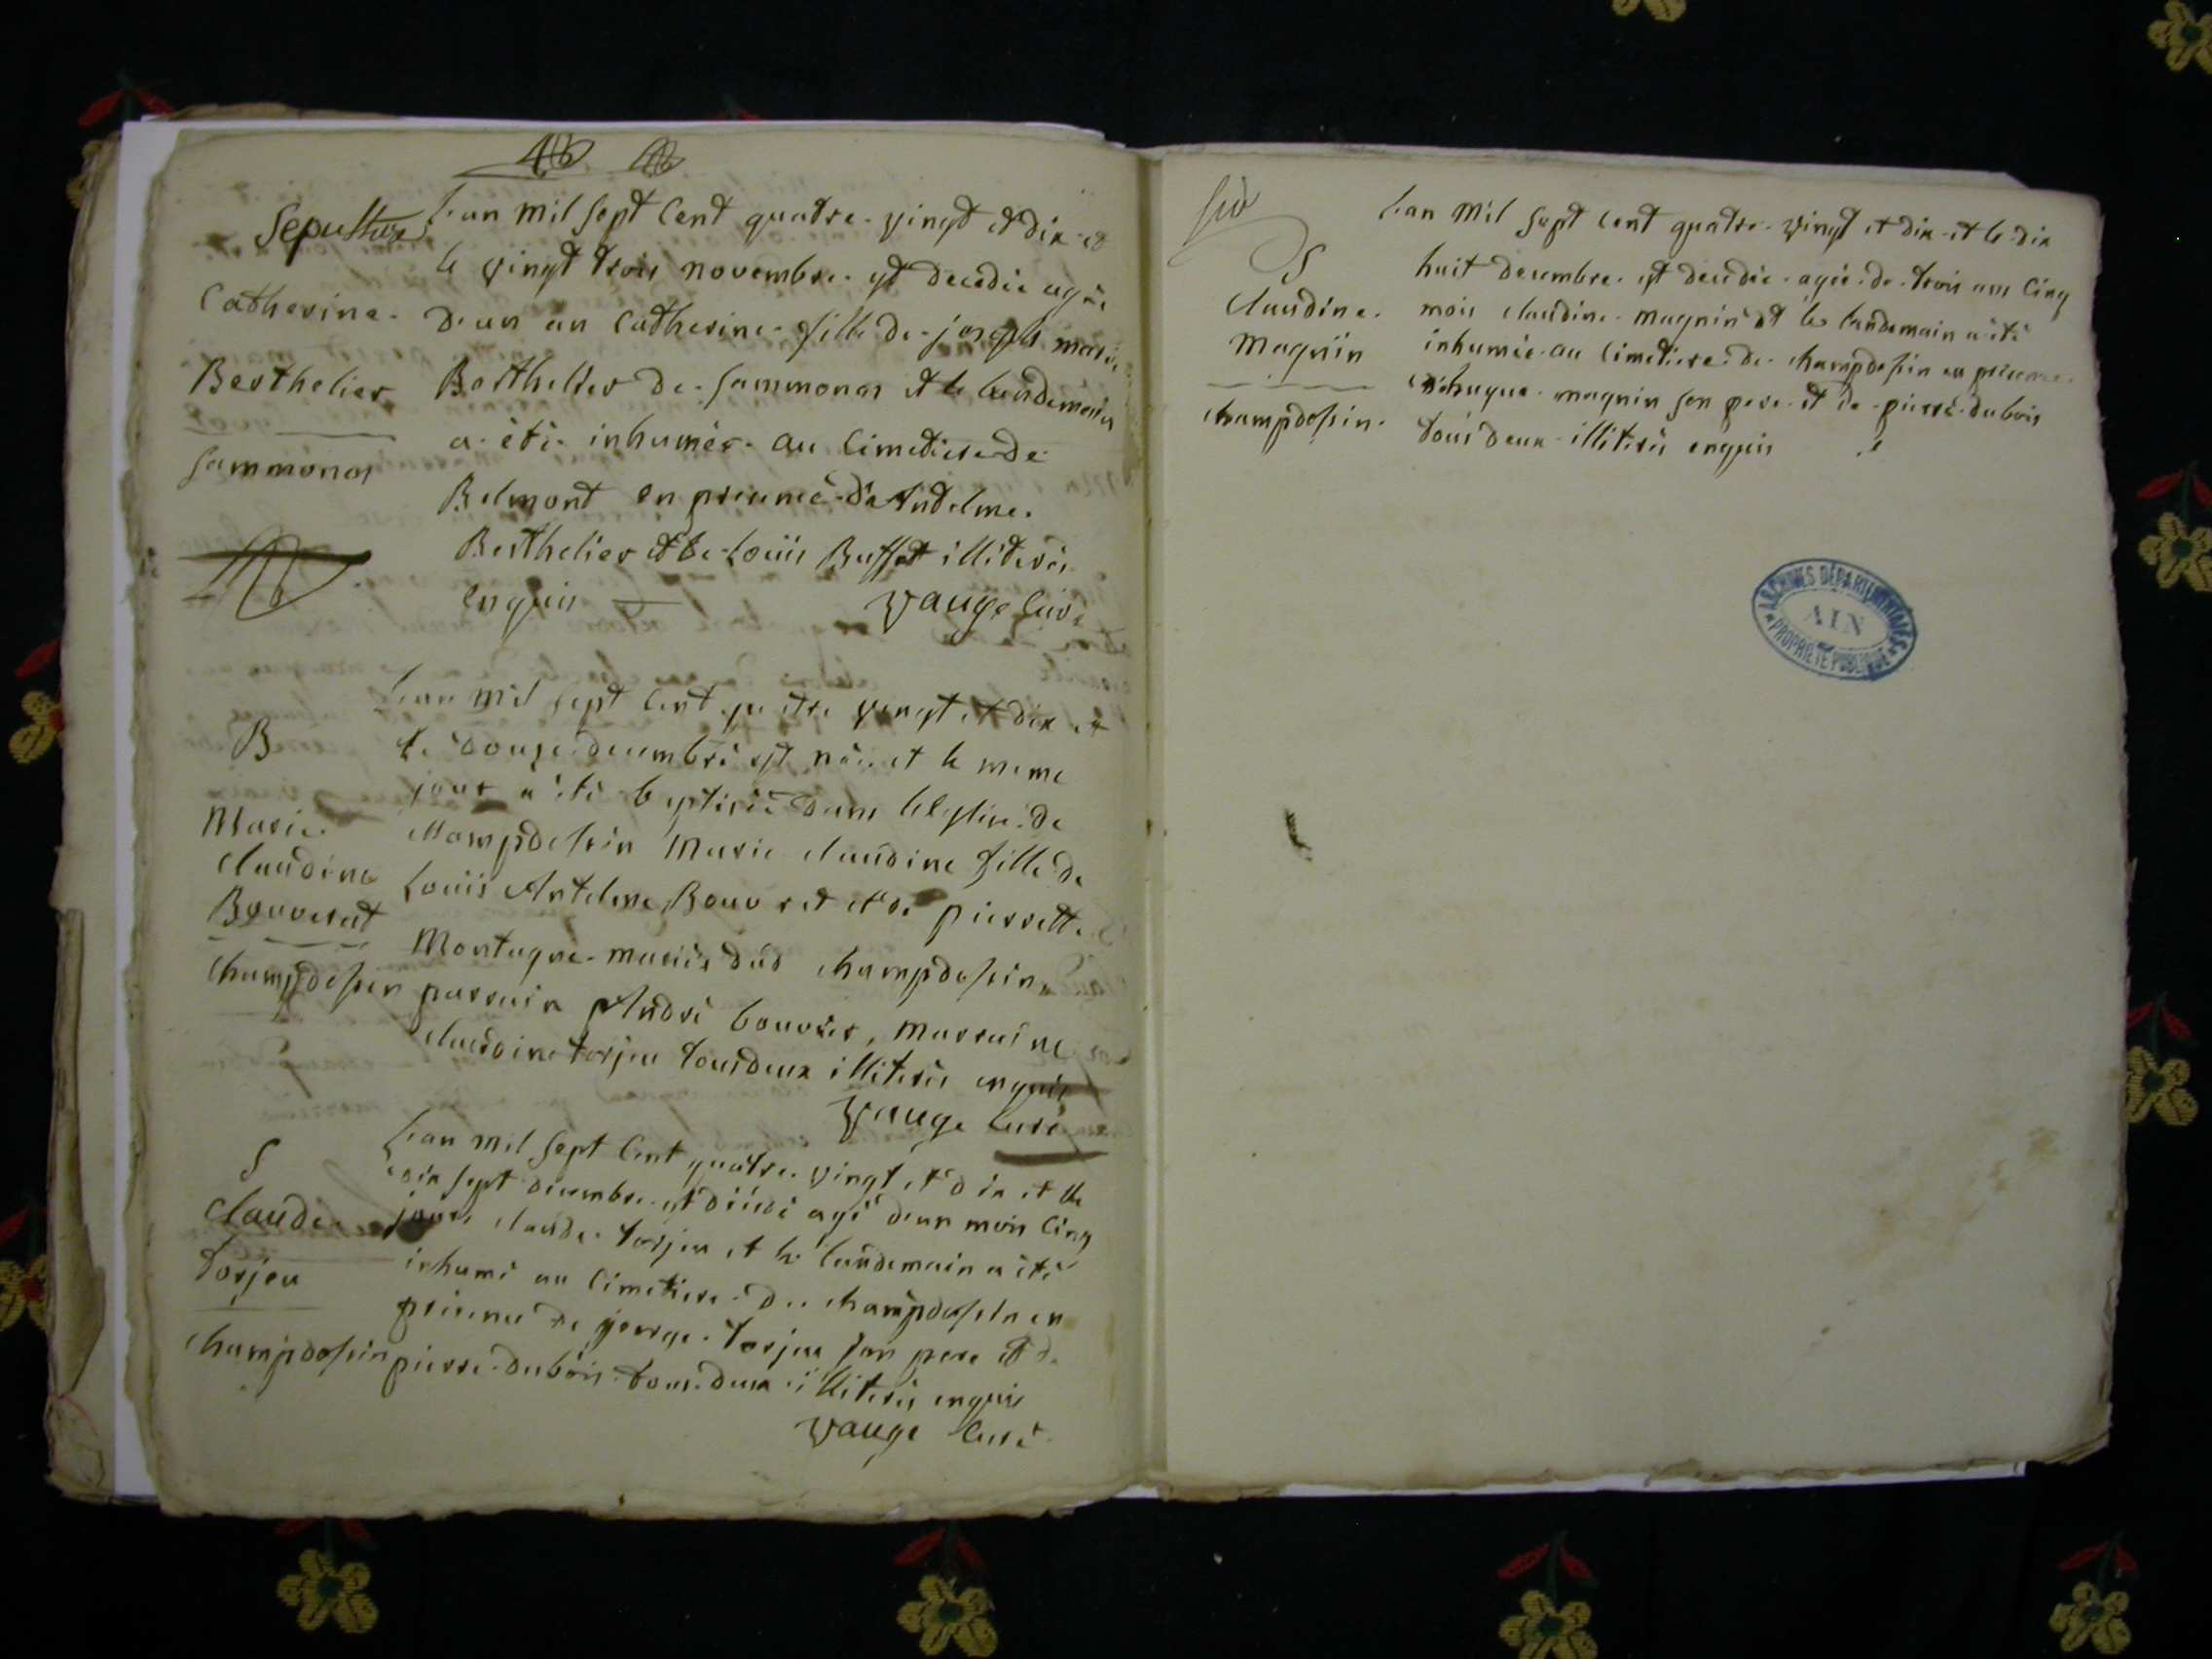 Sepulture
Catherine
Berthelier
Sammonas
L'an mil sept cent quatre vingt et dix et
le vingt trois novembre est décédée agée
d'un an Catherine fille de joseph marie
Berthelier de Sammonas et le lendemain
a été inhumée au cimetiere de
Belmont en presence de Antelme
Berthelier et de Louis Buffet illiterés
enquis vauge curé
B
Marie
claudine
Bouverat
champdossin
L'an mil sept cent quatre vingt et dix et
le douze decembre est née et le meme
jour a été baptisée dans leglise de
champdossin Marie claudine fille de
Louis Antelme Bouveret et de pierrette
Montagne mariés dud champdossin
parrain André bouvier, marraine
claudine torjeu tous deux illiterés enquis
vauge curé
S
claude
torjeu
champdossin
L'an mil sept cent quatre vingt et dix et le
dix sept decembre est décédé agé d'un mois cinq
jours claude torjeu et le lendemain a été
inhumé au cimetiere de champdossin en
présence de george torjeu son pere et de
pierre dubois tous deux illiterés enquis
vauge curé
S
claudine
magnin
champdossin
L'an mil sept cent quatre vingt et dix et le dix
huit decembre est décédée agée de trois ans cinq
mois claudine magnin et le lendemain a été
inhumée au cimetiere de champdossin en présence
magnin son pere et de pierre dubois
tous deux illiterés enquis
ARCHIVES DÉPARTEMENTALES
AIN
PROPRIÉTÉ PUBLIQUE